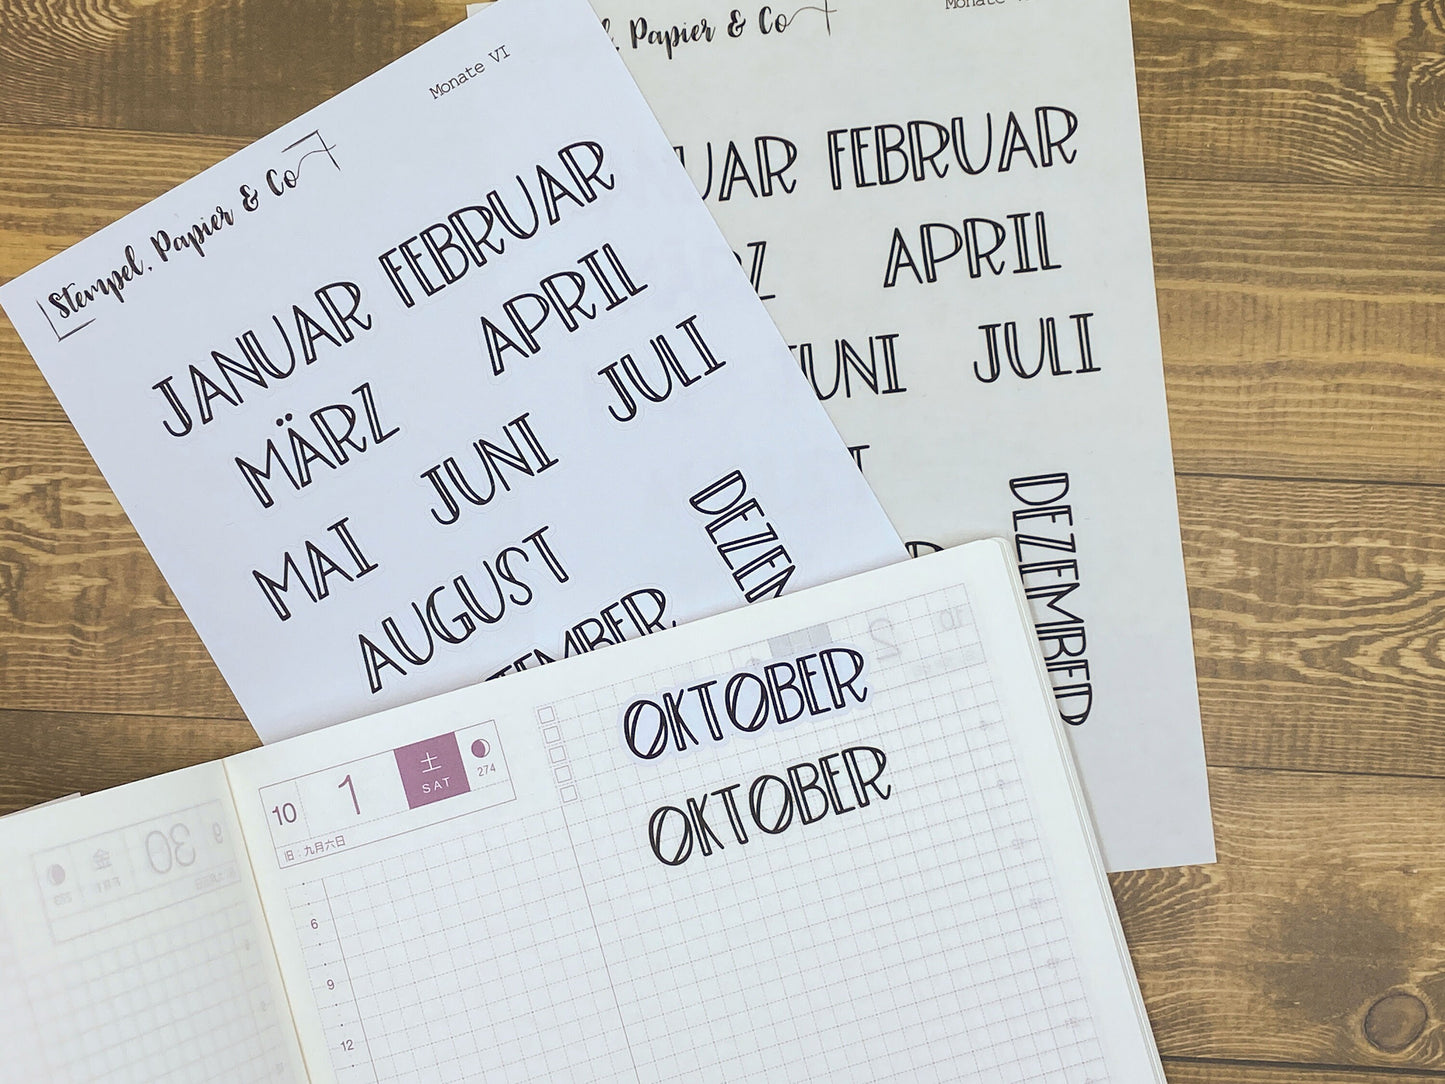 Stempel, Papier & Co
Monate VI
JANUAR FEBRUAR
MÄRZ APRIL
MAI JUNI JULI
AUGUST
DEZEM
TEMBER
Papier & Co
Monate
UAR FEBRUAR
RZ APRIL
JUNI JULI
DEZEMBER
10 1 土 SAT 274
旧・九月六日
6
9
12
OKTOBER
OKTOBER
9 30 金